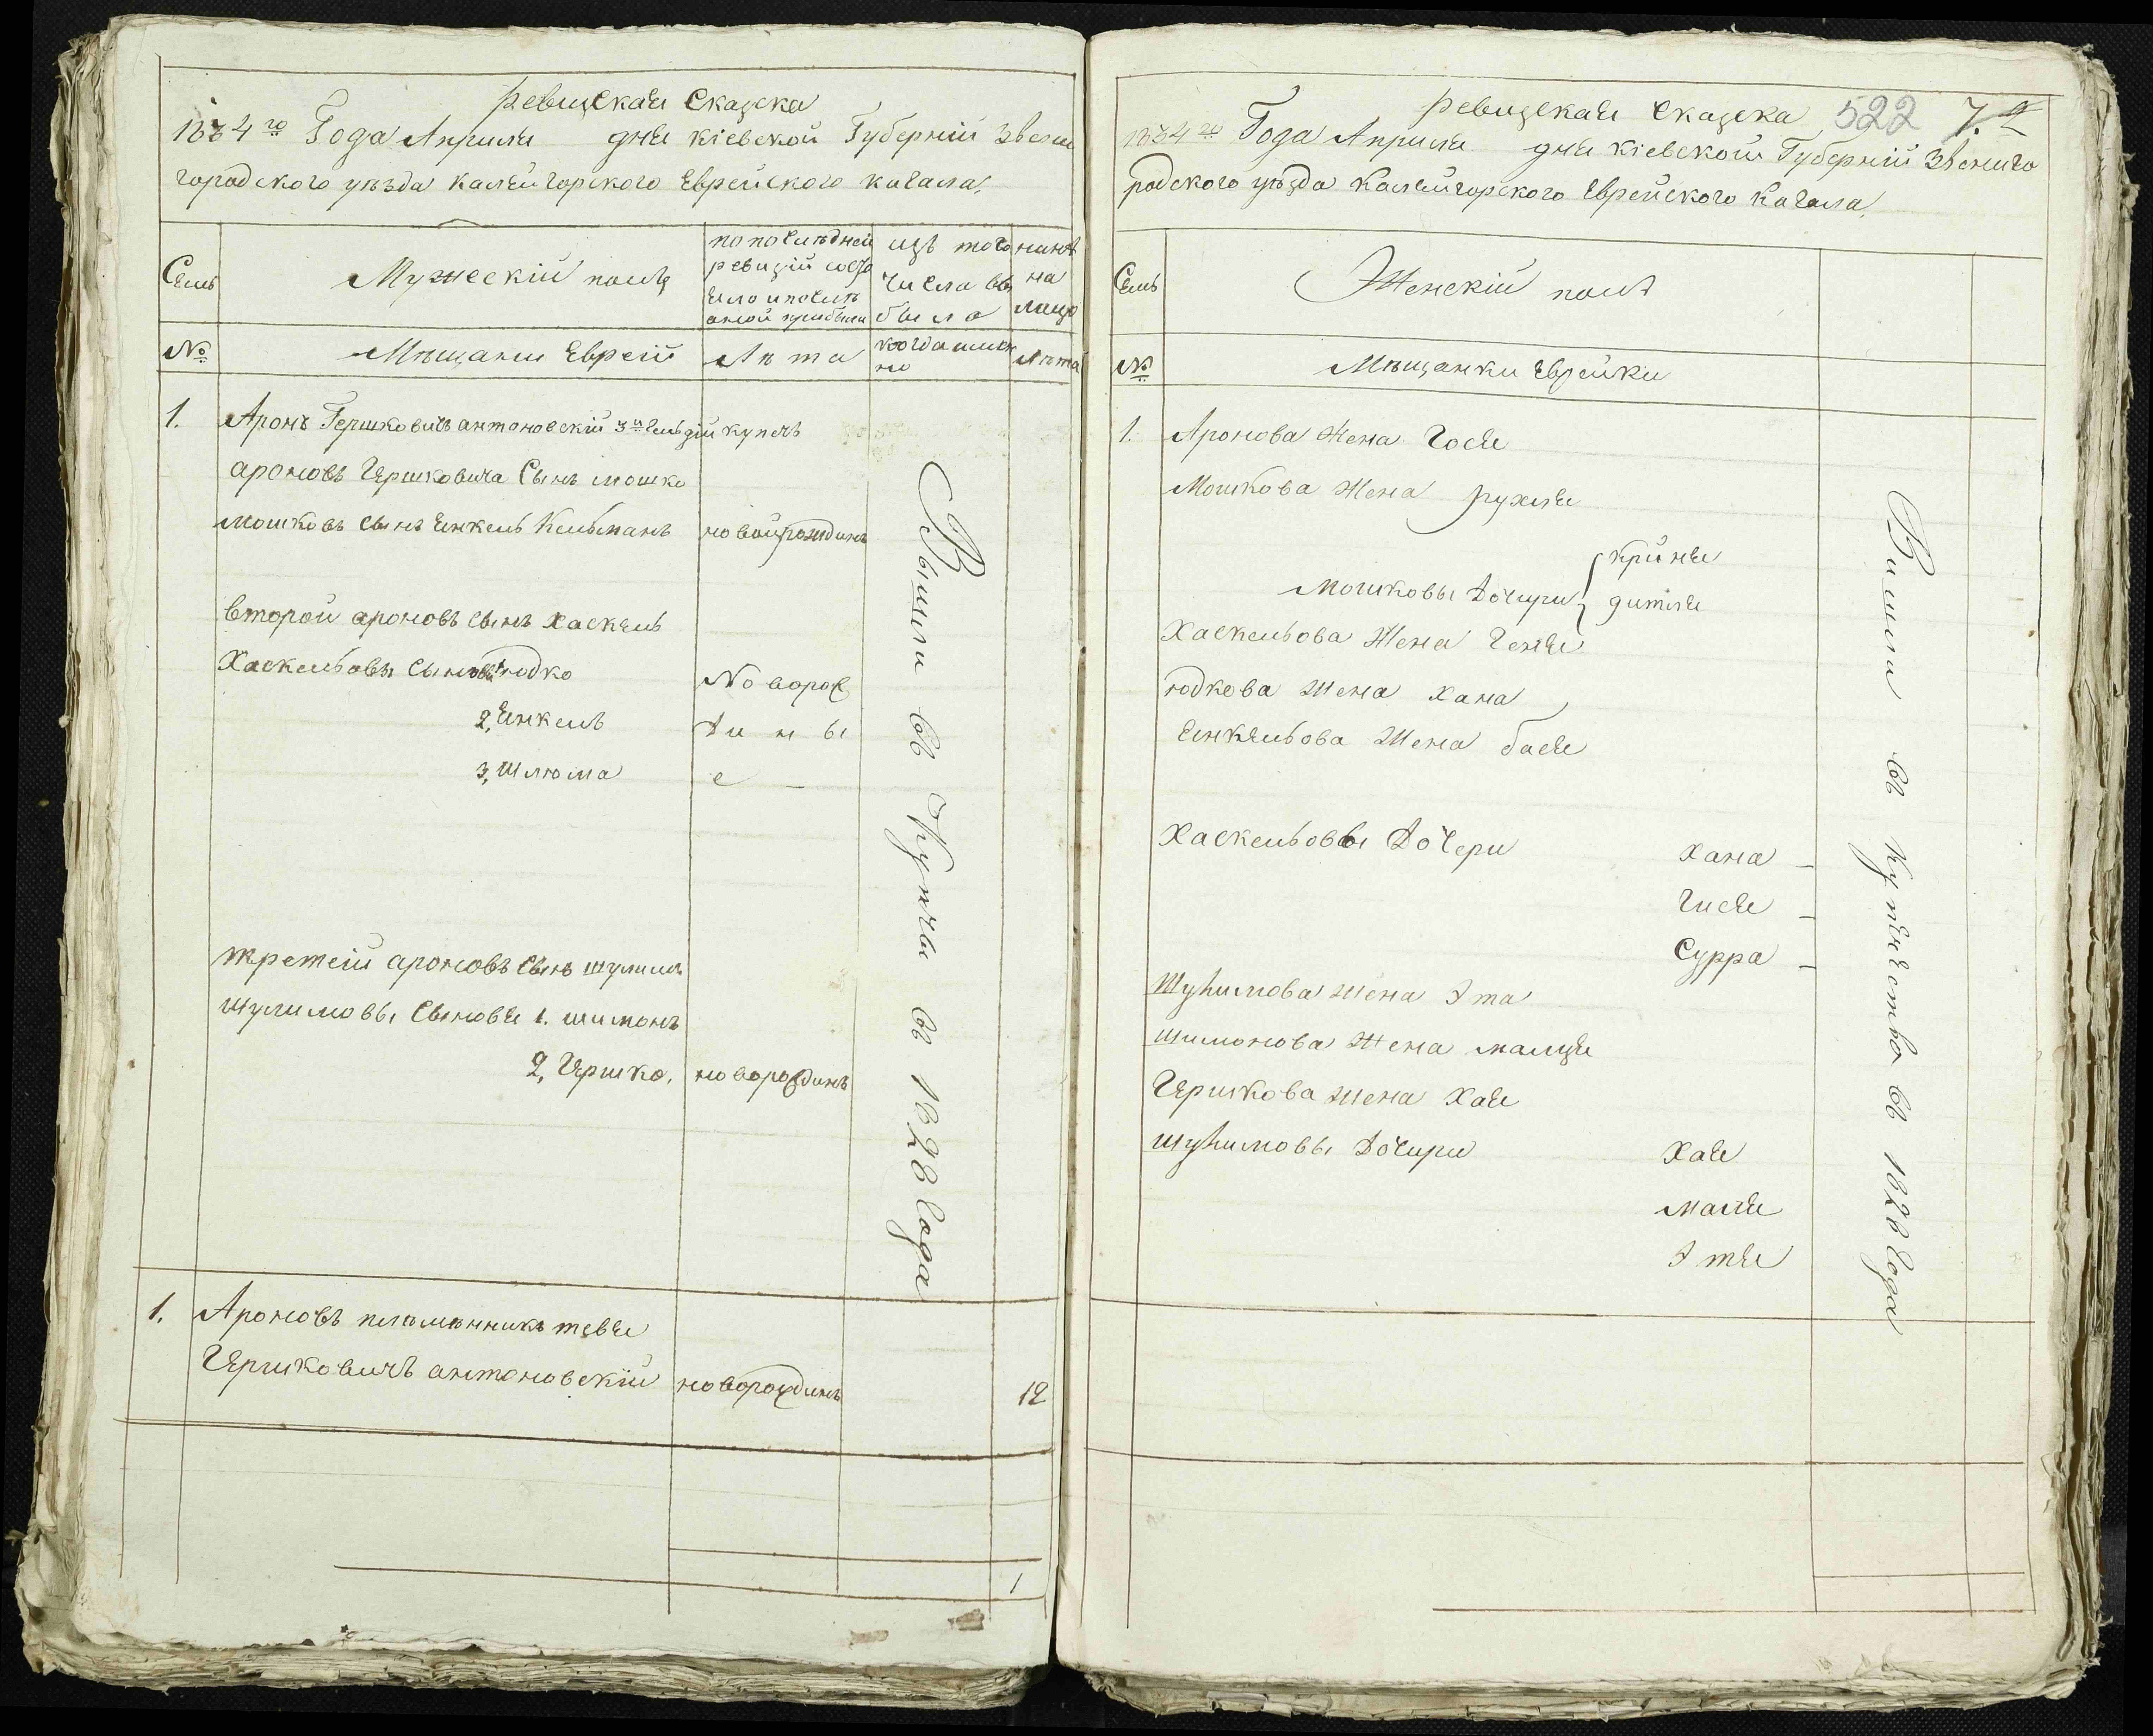 Ревизская Сказска
1834го Года Априля дня Кіевской Губерніи Звени
городского уѣзда Калнигорского Еврейского кагала.
Семь
Мужескій полъ
по послѣдней
ревизіи состо
яло и послѣ
оной прибыли
изъ того
числа вы
было
нинѣ
на
лицо
№
Мѣщани Евреи
Лѣта
когда имен
но
Лѣта
1. Аронъ Гершковичъ антоновскій 3й гильдіи купецъ
ароновъ Гершковича Сынъ мошко
мошковъ сынъ Янкель Кельманъ новойрожденъ
Второй ароновъ сынъ Хаскель
Хаскельовы сыновя Юдко Новорož
2, Янкель дин ы
3, Шлюма е
третей ароновъ сынъ шулимъ
шулимовы сыновя 1. шимонъ
2, Гершко, новорозденъ
Вышли въ Купцы въ 1828 года
1. Ароновъ племѣнникъ тевя
Гершковичъ антоновскій новорозденъ 12
1
Ревизская Сказска 522 7.
1834го Года Априля дня Кіевской Губерніи Звениго
родского уѣзда Калнигорского Еврейского Кагала.
Семь
Женскій полъ
№
Мѣщанки Еврейки
1. Аронова жена Гося
Мошкова жена рухля
Криня
Мошковы Дочири
дитля
Хаскельова жена Геня
юдкова жена хана
Янкельова жена бася
Хаскельовы Дочери Хана
Гися
Сурра
Шулимова жена Эта
шимонова жена малця
Гершкова жена Хая
шулимовы Дочири Хая
маля
Этя
Вишли въ купечество въ 1828 года